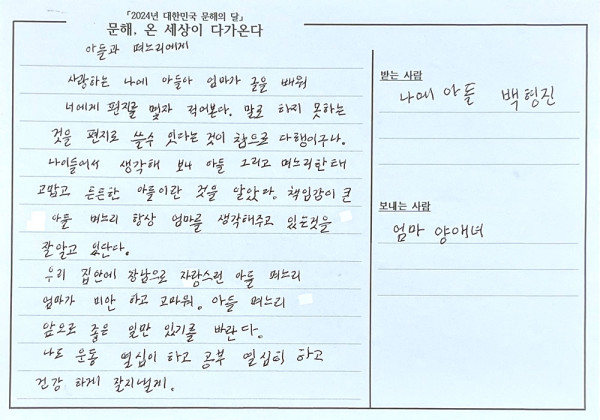 「2024년 대한민국 문해의 달」
문해, 온 세상이 다가온다
아들과 며느리에게
사랑하는 나에 아들아 엄마가 글을 배워
너에게 편지를 몇자 적어본다. 말로 하지 못하는
것을 편지로 쓸수 있다는 것이 참으로 다행이구나.
나이들어서 생각해 보니 아들 그리고 며느리한태
고맙고 든든한 아들이란 것을 알았다. 책임감이 큰
아들 며느리 항상 엄마를 생각해주고 있는것을
잘알고 있단다.
우리 집안에 장남으로 자랑스런 아들 며느리
엄마가 미안 하고 고마워. 아들 며느리
앞으로 좋은 일만 있기를 바란다.
나도 운동 열심이 하고 공부 열심히 하고
건강 하게 잘지낼게.
받는 사람
나에 아들 백형진
보내는 사람
엄마 양애녀